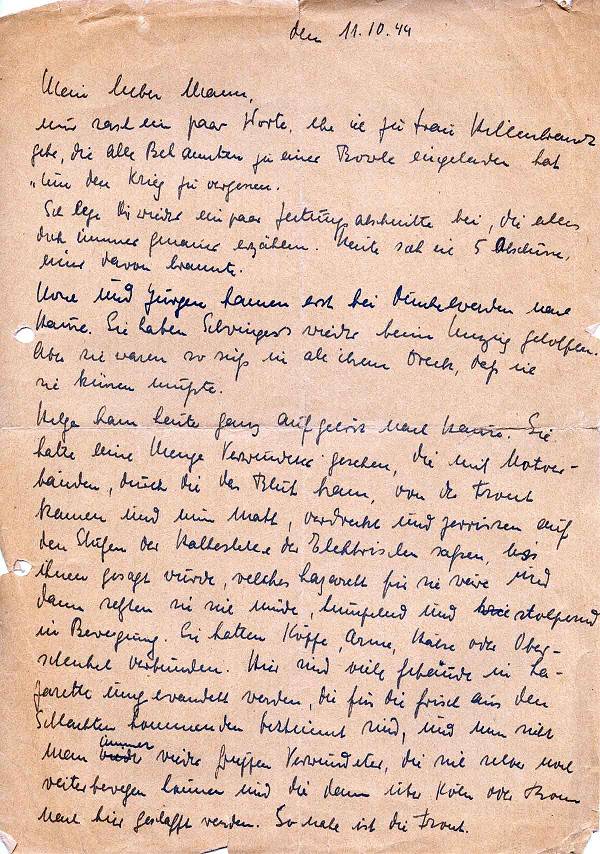 den 11.10.44
Mein lieber Mann,
nur rasch ein paar Worte, ehe ich zu Frau Hillenbrand
gehe, die alle Bekannten zu einer Bowle eingeladen hat
„um den Krieg zu vergessen.
Ich lege Dir wieder ein paar Zeitungsabschnitte bei, die alles
doch immer genauer erzählen. Heute sah ich 5 Abschüsse,
einer davon brannte.
und Jürgen kamen erst bei Dunkelwerden nach
Hause. Sie haben wieder beim Umzug geholfen.
Aber sie waren so süß in all ihrem Dreck, daß ich
sie küssen mußte.
Helga kam heute ganz aufgelöst nach Hause. Sie
hatte eine Menge Verwundete gesehen, die mit Notver-
bänden, durch die das Blut kam, von der Front
kamen und nun matt, verdreckt und zerrissen auf
den Stufen der Haltestelle der Elektrischen saßen, bis
ihnen gesagt wurde, welches Lazarett für sie wäre und
dann setzten sie sich müde, humpelnd und stolpernd
in Bewegung. Sie hatten Köpfe, Arme, Hälse oder Ober-
schenkel verbunden. Hier sind viele Gebäude in La-
zarette umgewandelt worden, die für die frisch aus den
Schlachten kommenden bestimmt sind, und nun sieht
man immer wieder Gruppen Verwundeter, die sich selber noch
weiterbewegen können und die dann über Köln oder Bonn
nach hier geschafft werden. So nahe ist die Front.